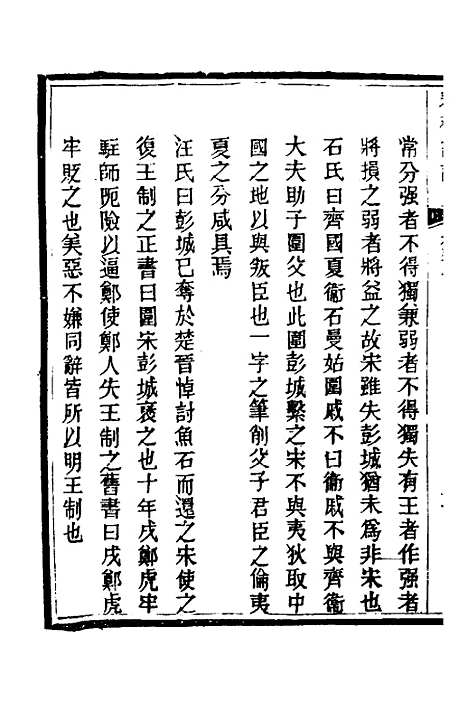 常分强者不得獨兼弱者不得獨失有王者作强者
將損之弱者將益之故宋雖失彭城猶未爲非宋也
石氏曰齊國夏衞石曼姑圍戚不曰衞戚不與齊衞
大夫助子圍父也此圍彭城繫之宋不與夷狄取中
國之地以與叛臣也一字之筆削父子君臣之倫夷
夏之分咸具焉
汪氏曰彭城已奪於楚晉悼討魚石而還之宋使之
復王制之正書曰圍宋彭城褒之也十年戍鄭虎牢
駐師阨險以逼鄭使鄭人失王制之舊書曰戍鄭虎
牢貶之也美惡不嫌同辭皆所以明王制也